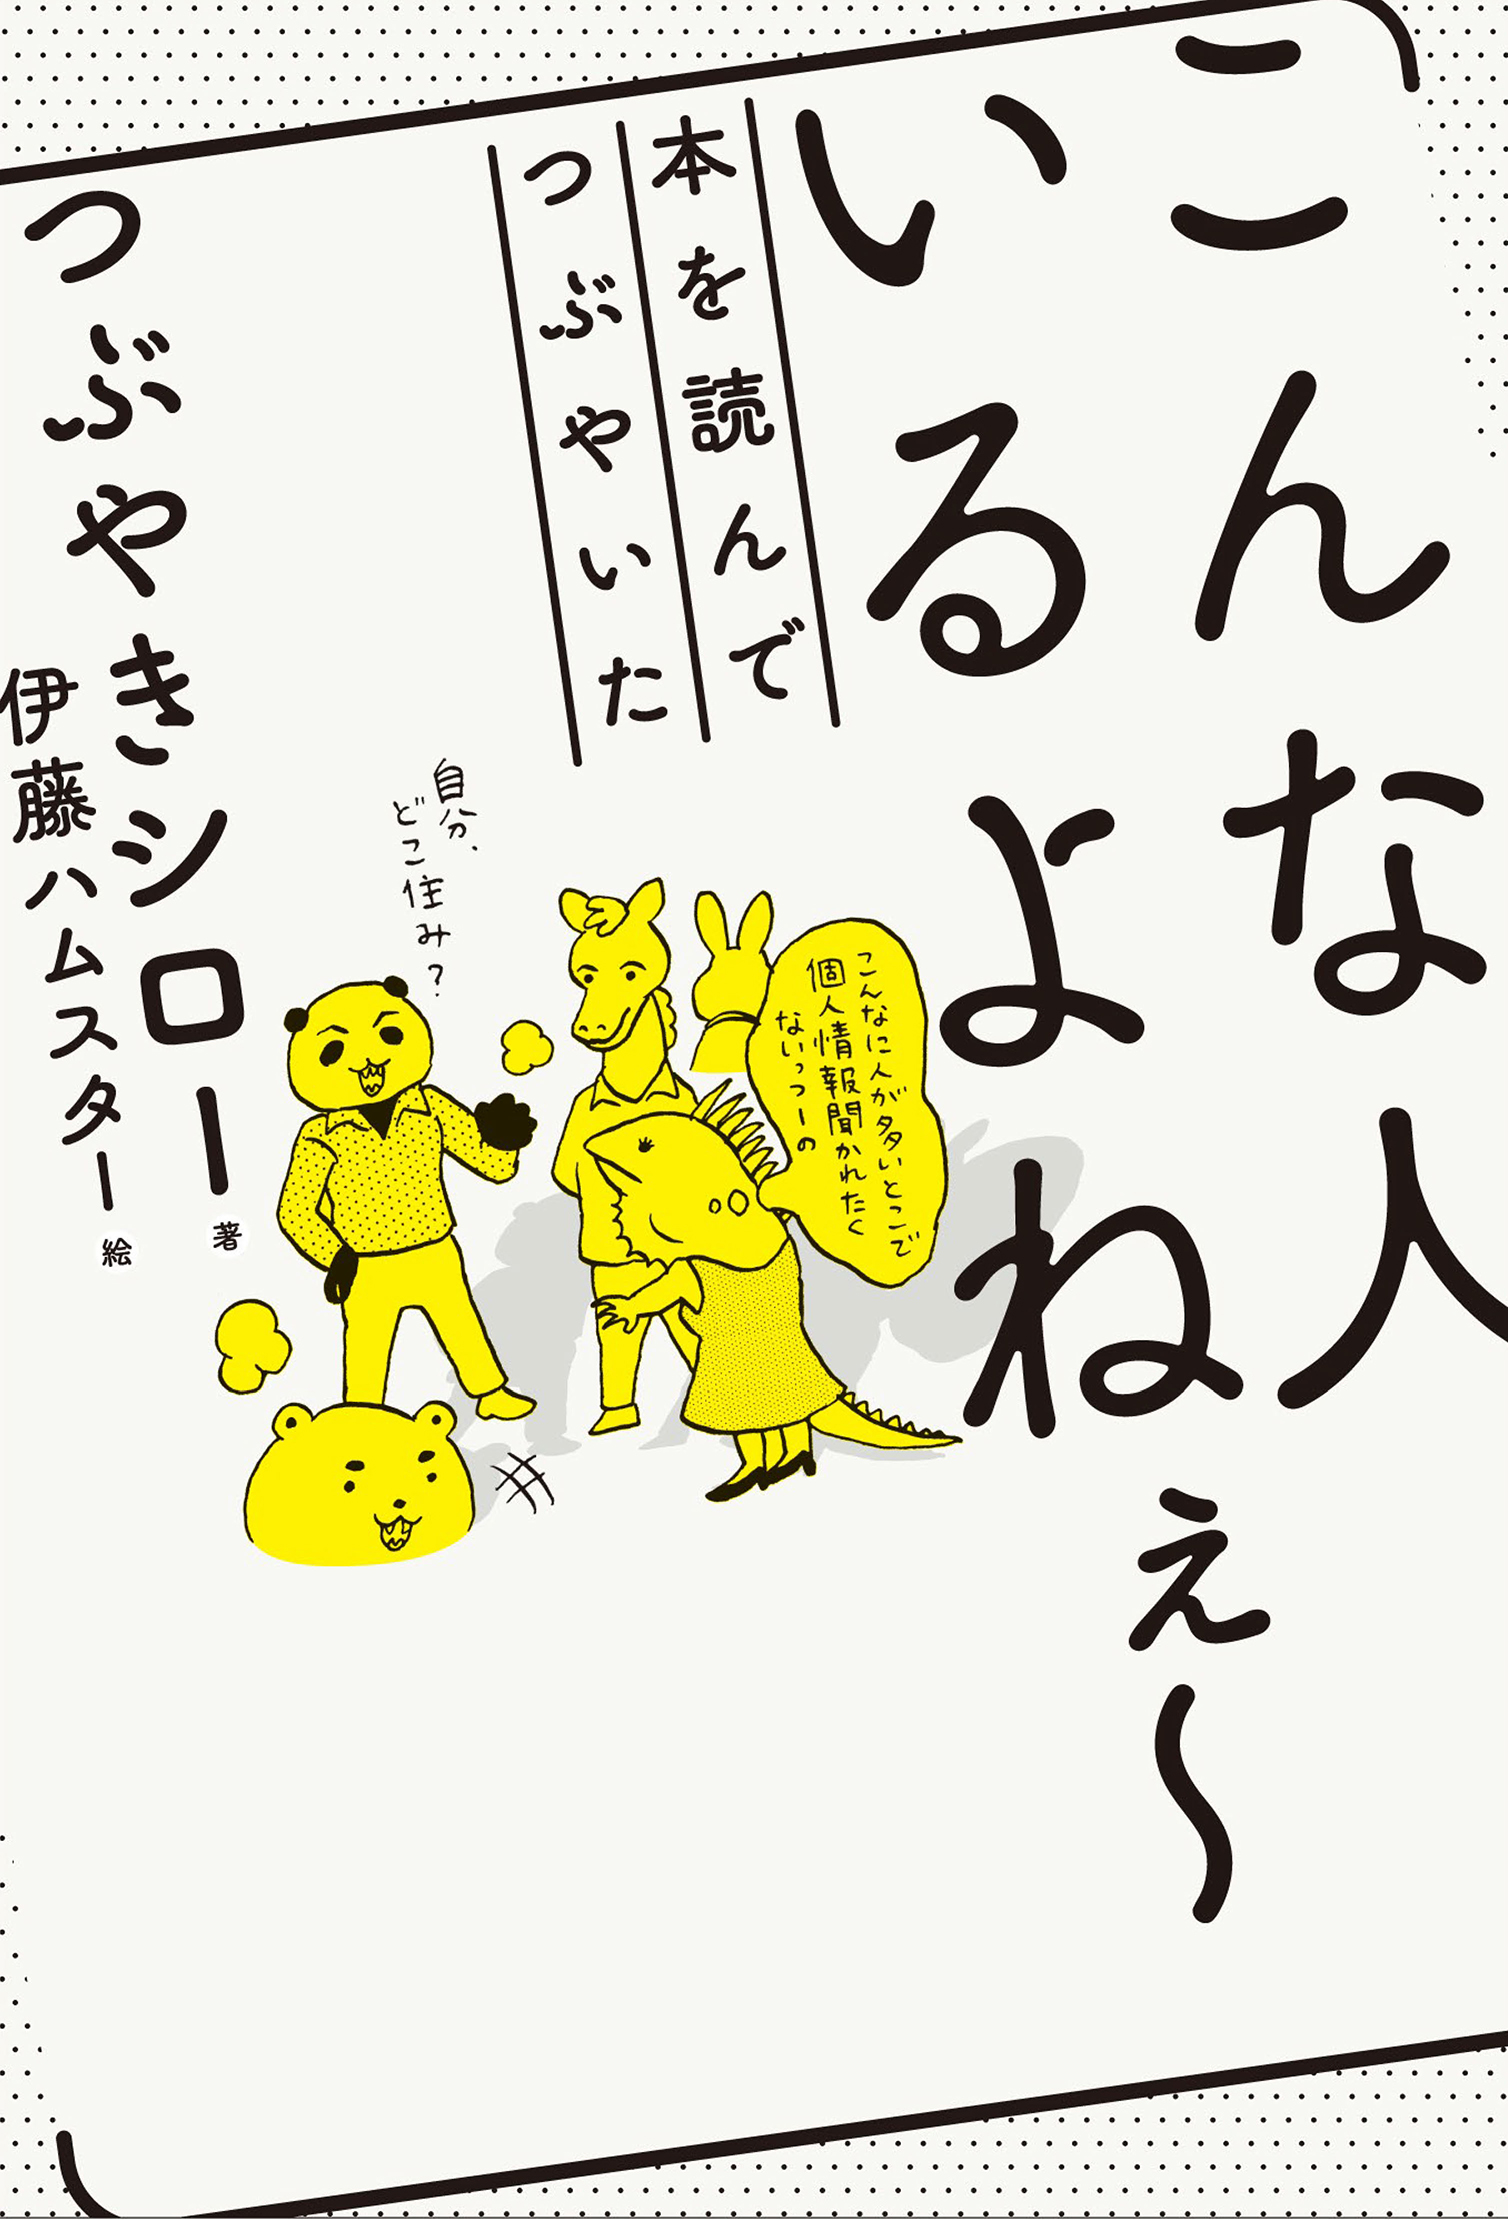 こんな人
いるよねぇ～
本を読んで
つぶやいた
つぶやきシロー 著
伊藤ハムスター 絵
自分、
どこ住み？
こんなに人が多いとこで
個人情報聞かれたく
ないっつーの